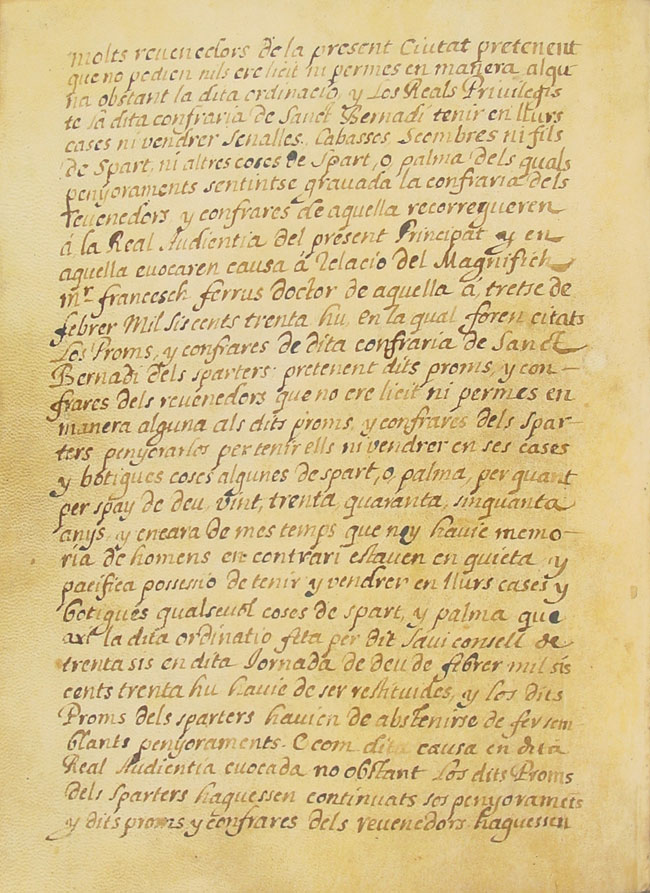 molts revenedors de la present Ciutat pretenent
que no podien nils ere licit ni permes en manera algu
na obstant la dita ordinació, y Los Reals Privilegis
te la dita confraria de Sanct Bernadí tenir en llurs
cases ni vendrer senalles, Cabassos Scombres ni fils
de Spart, ni altres coses de Spart, o, palma dels quals
penyoraments sentintse gravada la confraria dels
revenedors, y confrares de aquella recorregueren
á la Real Audientia del present Principat y en
aquella evocaren causa á relacio del Magnifich
mr. francesch ferrus doctor de aquella á, tretse de
febrer Mil sis cents trenta hu, en la qual foren citats
Los Proms, y confrares de dita confraria de Sanct
Bernadi dels sparters pretenent dits proms, y con-
frares dels revenedors que no ere licit ni permes en
manera alguna als dits proms, y confrares dels spar-
ters penyorarlos per tenir ells ni vendrer en ses cases
y botigues coses algunes de spart, o, palma, per quant
per spay de deu, vint, trenta, quaranta, sinquanta
anys, y encara de mes temps que noy havie memo-
ria de homens en contrari estaven en quieta, y
pacifica possessio de tenir y vendrer en llurs cases y
botigues qualsevol coses de spart, y palma que
axt. la dita ordinatio feta per dit Savi consell de
trenta sis en dita Jornada de deu de febrer mil sis
cents trenta hu havie de ser restituides, y los dits
Proms dels sparters havien de abstenirse de fer sem
blants penyoraments. E com dita causa en dita
Real Audientia evocada no obstant Los dits Proms
dels Sparters haguessen continuats sos penyoraments
y dits proms y confrares dels revenedors haguessen